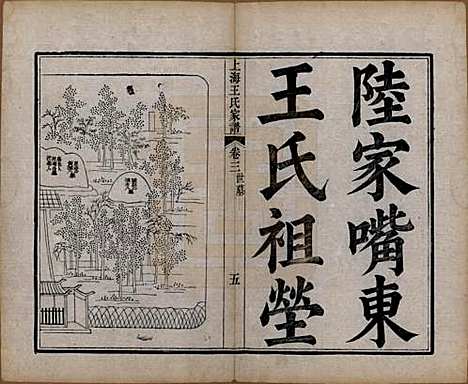 陸家嘴東
王氏祖塋
上海王氏家譜
卷三世墓
五